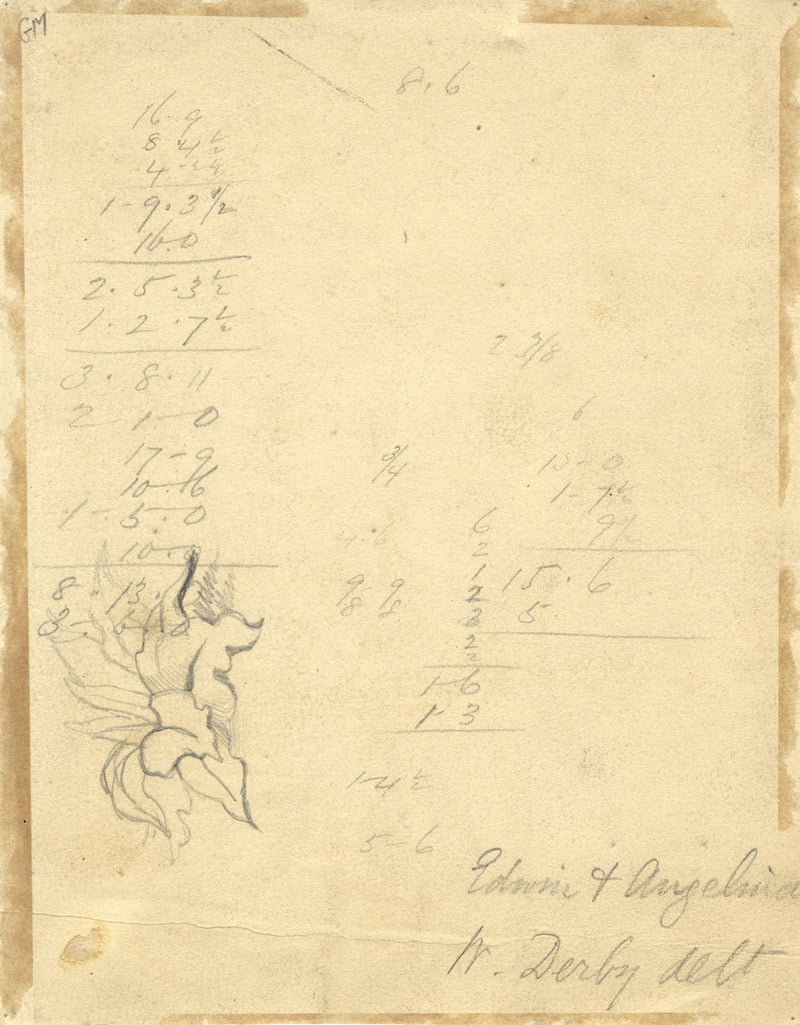 GM
8.6
16.9
8 4½
1-9.3½
16.0
2.5.3½
1.2.7½
3.8.11
2-1-0
17-9
10-6
1-5-0
10-0
8.13.
2 7/8
6
¾
13-0
1-7½
9½
4.6
6
2
1
2
3
2
2
15.6
5
9 9
8 8
1-6
1-3
1-4½
5-6
Edwin & Angelina
W. Derby delt